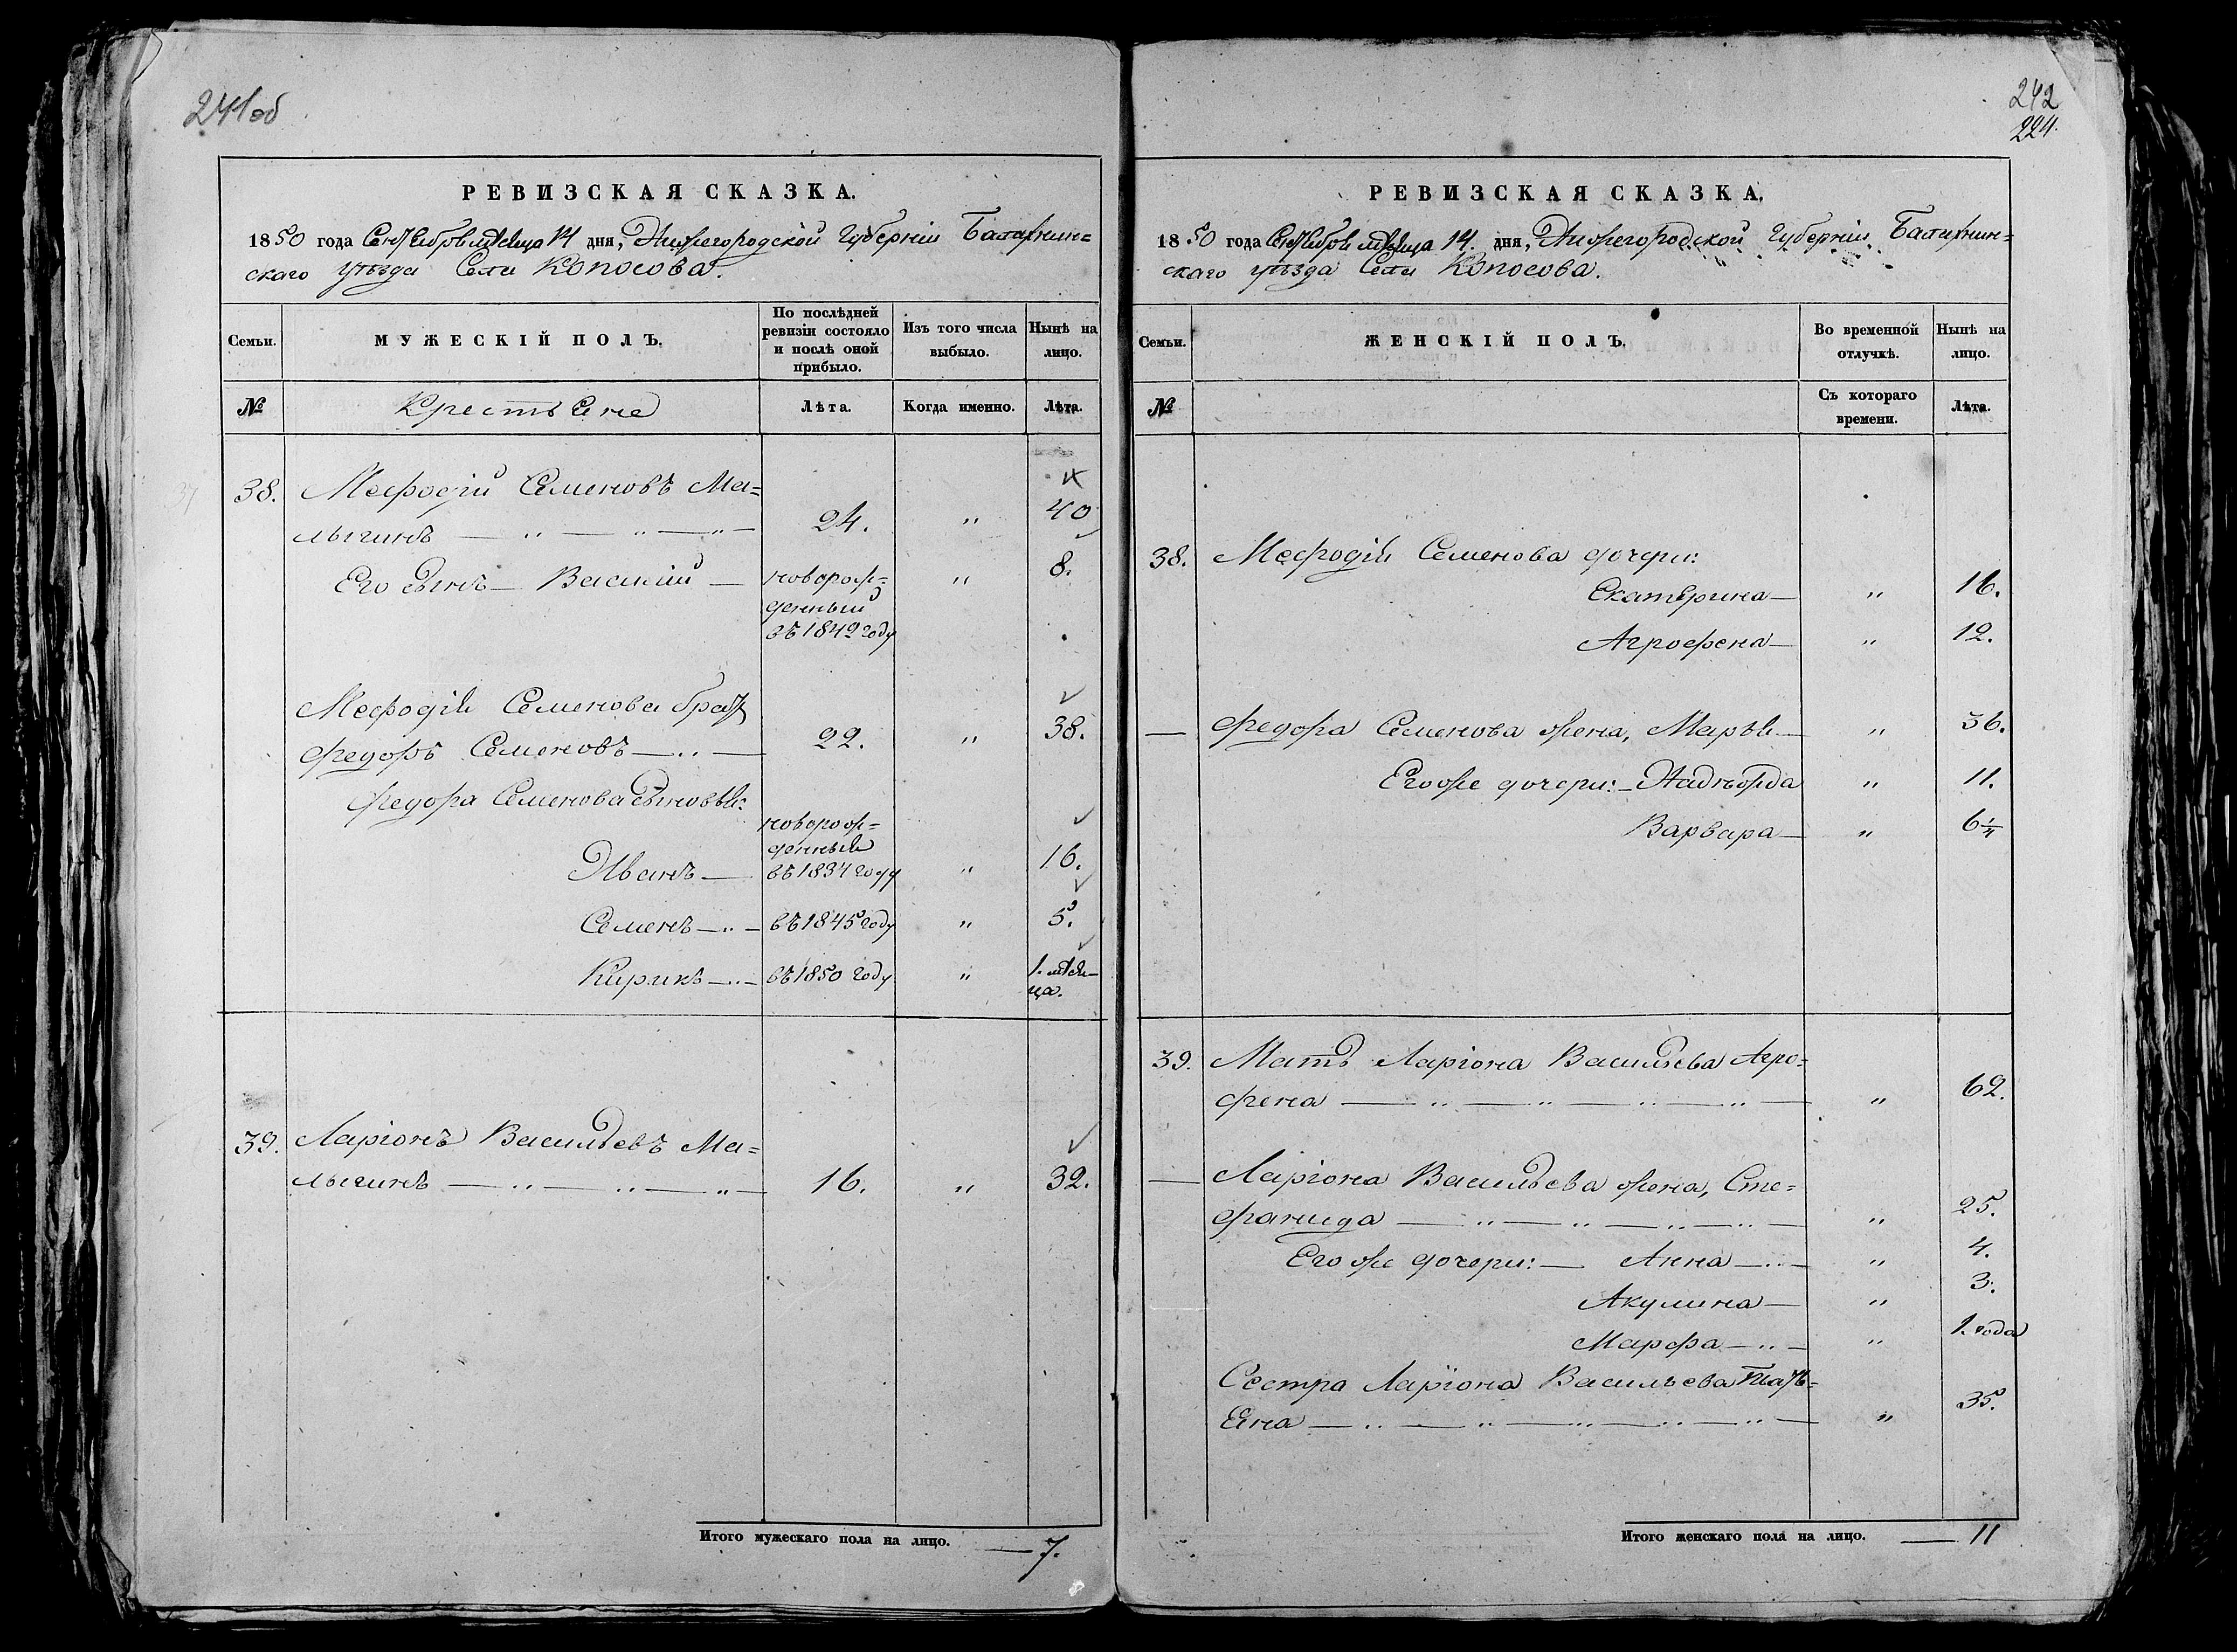 241об
РЕВИЗСКАЯ СКАЗКА.
1850 года Сентября мѣсяца 14 дня, Нижегородской Губерніи Балахнин=
скаго уѣзда Села Копосова.
Семьи. МУЖЕСКІЙ ПОЛЪ. По послѣдней ревизіи состояло и послѣ оной прибыло. Изъ того числа выбыло. Нынѣ на лицо.
№ Крестьяне Лѣта. Когда именно. Лѣта.
38. Мефодій Семеновъ Ма=
лыгинъ — " — " — " — 24. " 40
Его сынъ — Василий — новорож= " 8.
денный
въ 1842 году
Мефодія Семенова братъ
Федоръ Семеновъ — " — 22. " 38.
Федора Семенова сыновья:
новорож=
денныя
Иванъ — въ 1834 году " 16.
Семенъ — " — въ 1845 году " 5.
Кирикъ — " — въ 1850 году " 1. мѣся=
ца.
39. Ларіонъ Васильевъ Ма=
лыгинъ — " — " — " — 16. " 32.
Итого мужескаго пола на лицо. — 7.
242
224.
РЕВИЗСКАЯ СКАЗКА.
1850 года Сентября мѣсяца 14. дня, Нижегородской Губерніи Балахнин=
скаго уѣзда Села Копосова.
Семьи. ЖЕНСКІЙ ПОЛЪ. Во временной отлучкѣ. Нынѣ на лицо.
№ Съ котораго времени. Лѣта.
38. Мефодія Семенова дочери:
Екатерина — " 16.
Агрофена — " 12.
— Федора Семенова жена, Марья — " 36.
Его же дочери: — Надѣжда " 11.
Варвара — " 6
39. Мать Ларіона Васильева Агро=
фена — " — " — " — " — " 62.
— Ларіона Васильева жена, Сте=
фанида — " — " — " — " — " 25.
Его же дочери: — Анна — " — " 4.
Акулина — " 3.
Марфа — " — " 1. года
Сестра Ларіона Васильева Тать=
яна — " — " — " — " — " — " 35.
Итого женскаго пола на лицо. — 11